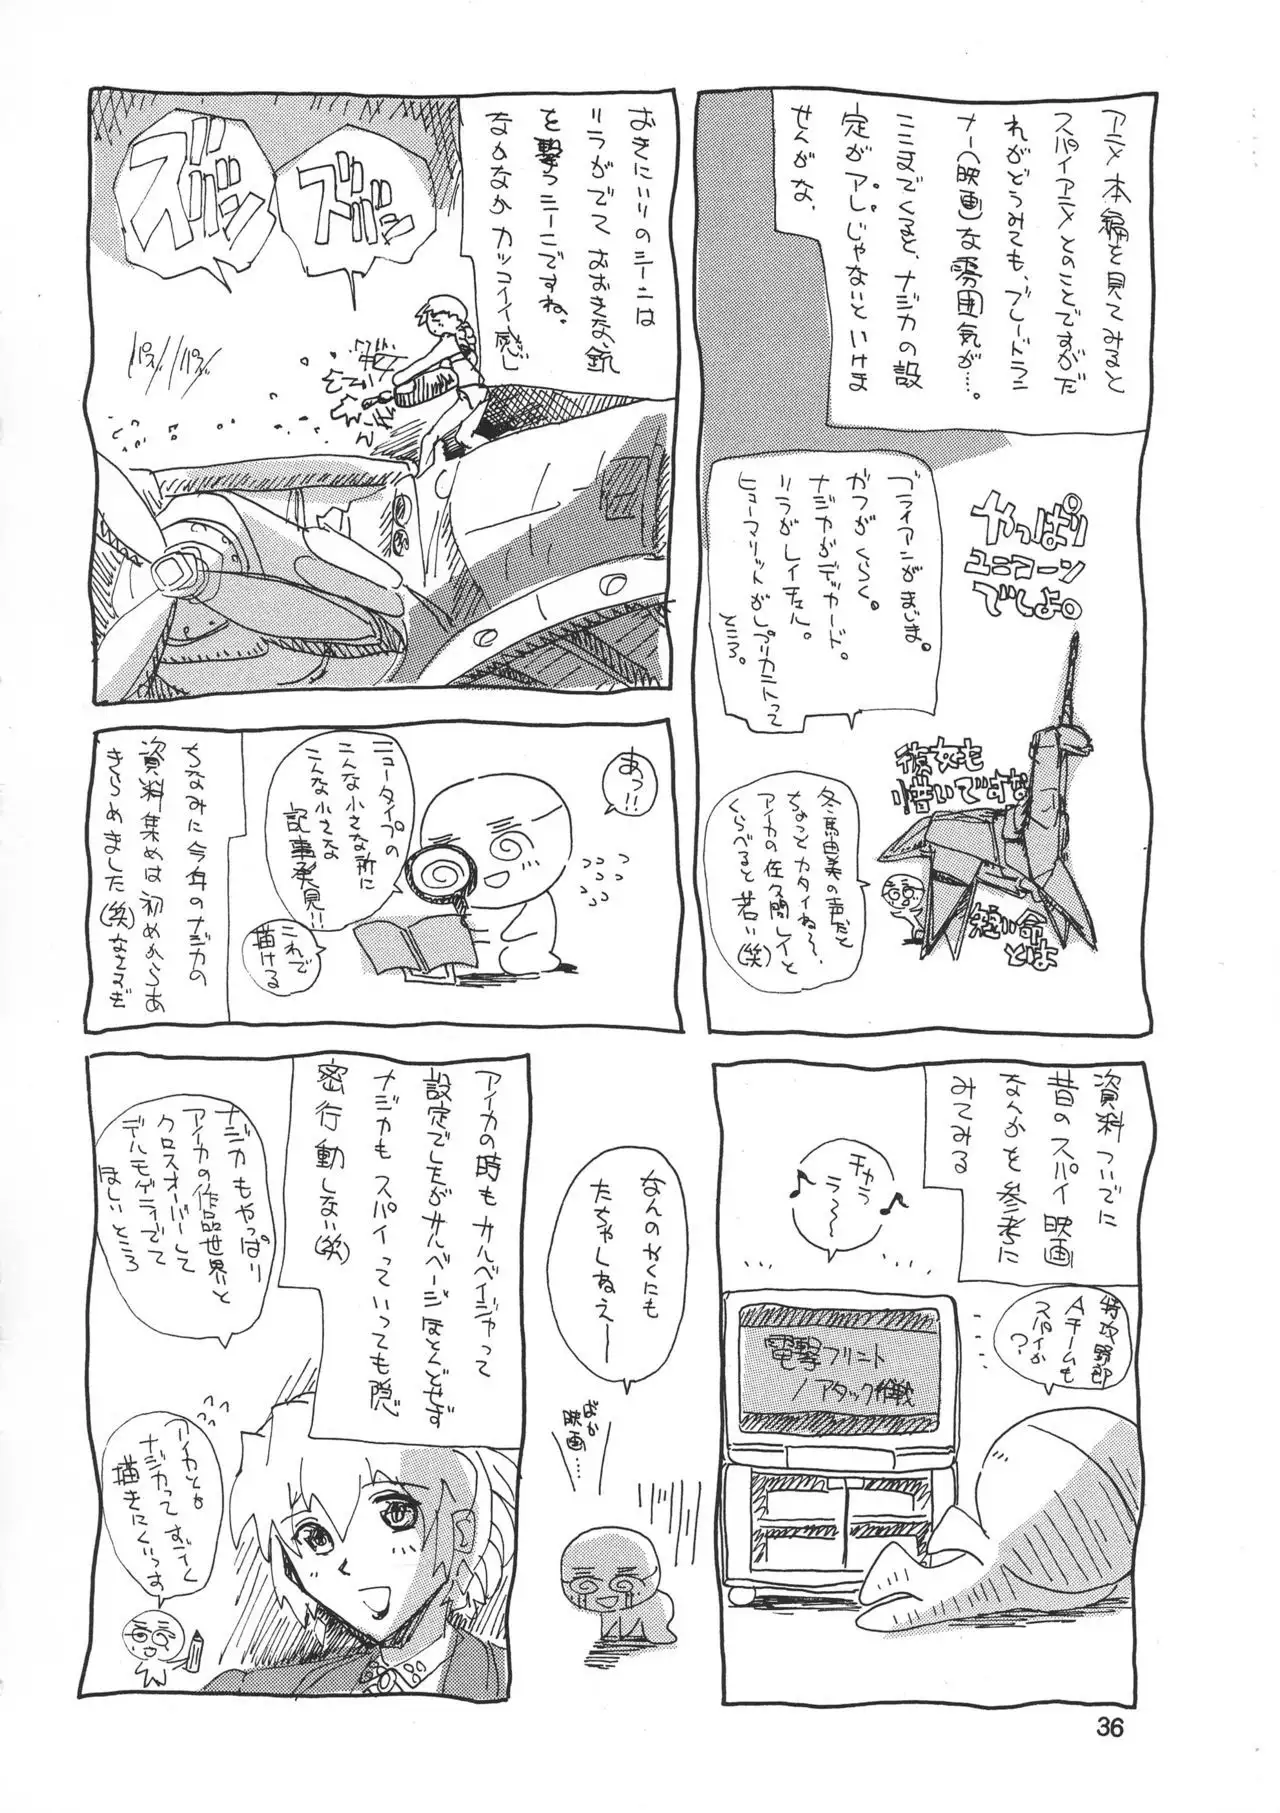 アニメ本編を見てみると
スパイアニメとのことですがだ
れがどうみても、ブレードランナ
ー(映画)な雰囲気が…。
ここまでくると、ナジカの設
定がアレじゃないといけま
せんがな。
やっぱり
ユニコーン
でしょ。
ブライアンがまじま。
がつがしっく。
ナジカがデッカード。
リラがレイチェル。
ヒューマリットがレプリカントって
ところ。
彼女も
惜いですな
短い命
とは
冬馬由美の声だと
ちょっとカタイね〜、
アイカの佐久間レイと
くらべると若い(笑)
おきにいりのシーンは
リラがでておおきな、銃
を撃つシーンですね。
なかなかカッコイイ感じ
ズババッ
ズババッ
パスパス
あっ!!
ニュータイプの
こんな小さな所に
こんな小さな
記事発見!!
これで
描ける
ちなみに今年のナジカの
資料集めは初めからあ
きらめました(笑)なさすぎ
資料ついでに
昔のスパイ映画
なんかを参考に
みてみる
チャラ
ラ〜〜
特攻野郎
Aチームも
スパイか
?
電撃フリント
/アタック作戦
なんのやくにも
たちゃしねえ──
ばか
映画…
アイカの時もサルベイジャって
設定でしたがサルベージほとんどせず
ナジカもスパイっていっても隠
密行動しない(笑)
ナジカもやっぱり
アイカの作品世界と
クロスオーバーして
デルモゲラでて
ほしいところ
アイカとも
ナジカってすごく
描きにくいっす
36